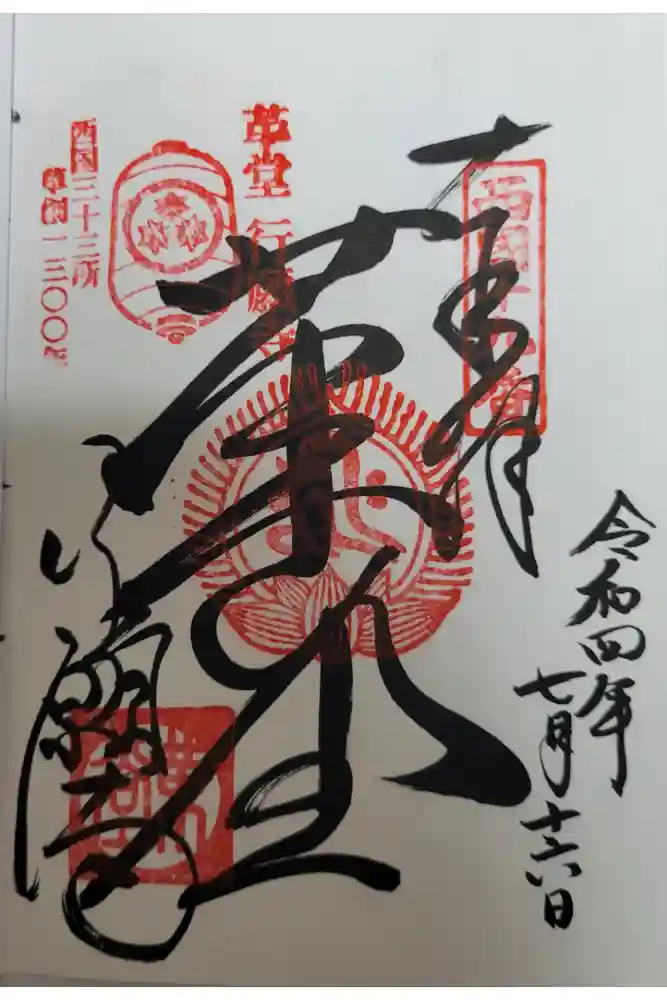 奉拝
西国十九番
令和四年
七月十六日
革堂 行願寺
革堂
西国三十三所
草創一三〇〇年
行願寺